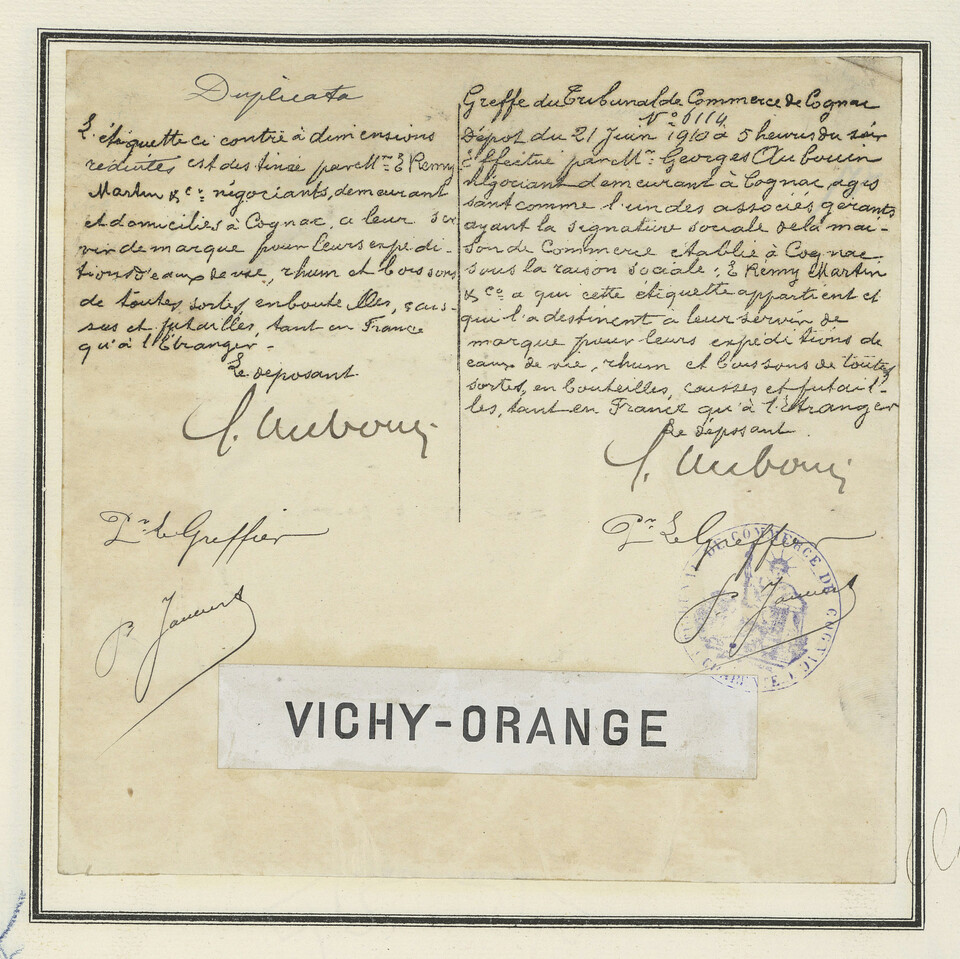 Duplicata
L'étiquette ci contre à dimensions
reduites est destinée par Mrs E Remy
Martin & Co négociants, demeurant
et domiciliés à Cognac, a leur ser
vir de marque pour leurs expédi-
tions d'eaux de vie, rhum et boissons
de toutes sortes en bouteilles, cais-
ses et futailles, tant en France
qu'à l'Étranger-
Le deposant
G. Aubouin
Pr le Greffier
P. Januers
Greffe du Tribunal de Commerce de Cognac
No 6114
Dépot du 21 Juin 1910 à 5 heures du soir
Effectué par Mr Georges Aubouin
négociant demeurant à Cognac, agis
sant comme l'un des associés gérants
ayant la signature sociale de la mai-
son de Commerce etablie à Cognac
sous la raison sociale: E Remy Martin
& Co a qui cette étiquette appartient et
qui l'a destinent à leur servir de
marque pour leurs expéditions de
eaux de vie, rhum et boissons de toutes
sortes, en bouteilles, caisses et futail-
les, tant en France qu'à l'étranger
Le déposant
G. Aubouin
Pr Le Greffier
P. Januers
TRIBUNAL DE COMMERCE DE COGNAC
(CHARENTE)
VICHY-ORANGE